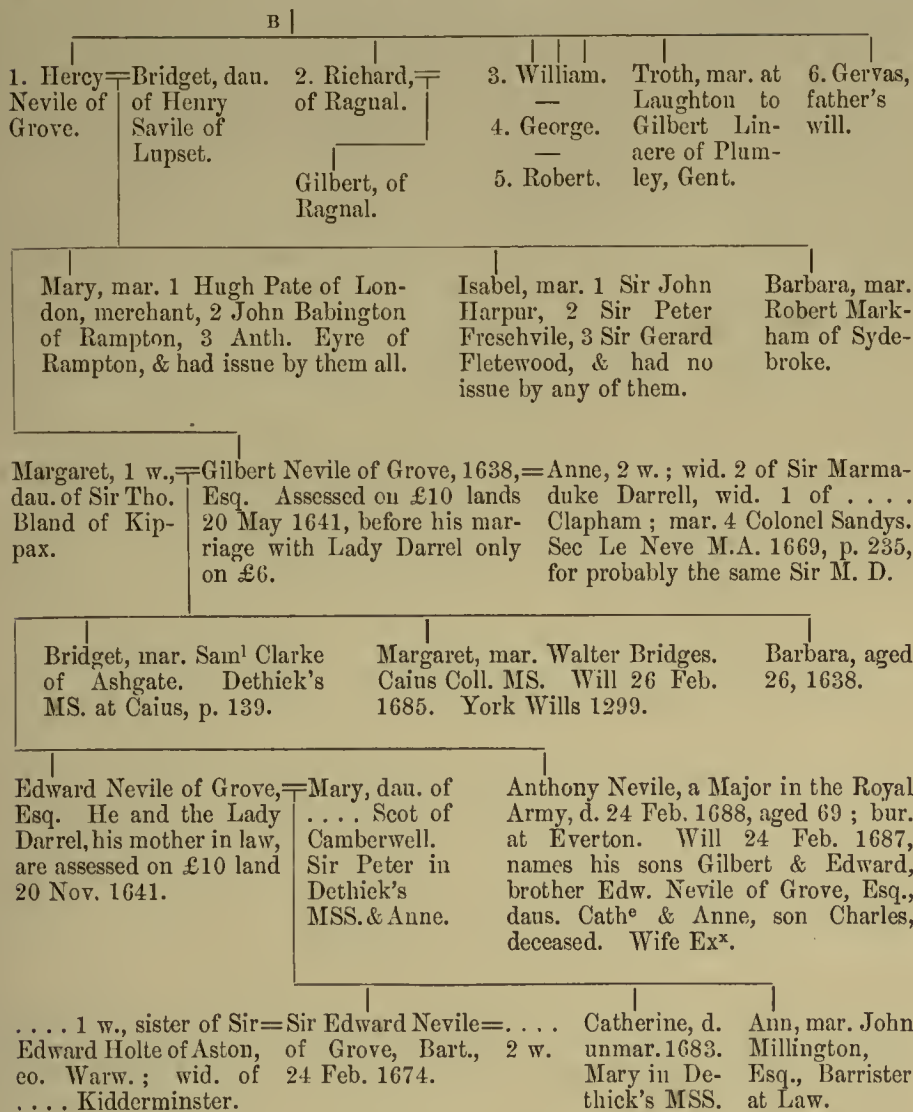 B
1. Hercy Nevile of Grove.
Bridget, dau. of Henry Savile of Lupset.
2. Richard, of Ragnal.
Gilbert, of Ragnal.
3. William.
—
4. George.
—
5. Robert.
Troth, mar. at Laughton to Gilbert Linacre of Plumley, Gent.
6. Gervas, father's will.
Mary, mar. 1 Hugh Pate of Lon-
don, merchant, 2 John Babington
of Rampton, 3 Anth. Eyre of
Rampton, & had issue by them all.
Isabel, mar. 1 Sir John
Harpur, 2 Sir Peter
Freschvile, 3 Sir Gerard
Fletewood, & had no
issue by any of them.
Barbara, mar.
Robert Mark-
ham of Syde-
broke.
Margaret, 1 w.,
dau. of Sir Tho.
Bland of Kip-
pax.
Gilbert Nevile of Grove, 1638,
Esq. Assessed on £10 lands
20 May 1641, before his mar-
riage with Lady Darrel only
on £6.
Anne, 2 w.; wid. 2 of Sir Marma-
duke Darrell, wid. 1 of . . . .
Clapham; mar. 4 Colonel Sandys.
See Le Neve M.A. 1669, p. 235,
for probably the same Sir M. D.
Bridget, mar. Samˡ Clarke
of Ashgate. Dethick's
MS. at Caius, p. 139.
Margaret, mar. Walter Bridges.
Caius Coll. MS. Will 26 Feb.
1685. York Wills 1299.
Barbara, aged
26, 1638.
Edward Nevile of Grove,
Esq. He and the Lady
Darrel, his mother in law,
are assessed on £10 land
20 Nov. 1641.
Mary, dau. of
. . . . Scot of
Camberwell.
Sir Peter in
Dethick's
MSS. & Anne.
Anthony Nevile, a Major in the Royal
Army, d. 24 Feb. 1688, aged 69; bur.
at Everton. Will 24 Feb. 1687,
names his sons Gilbert & Edward,
brother Edw. Nevile of Grove, Esq.,
daus. Cathᵉ & Anne, son Charles,
deceased. Wife Exˣ.
. . . . 1 w., sister of Sir
Edward Holte of Aston,
co. Warw.; wid. of
. . . . Kidderminster.
Sir Edward Nevile
of Grove, Bart.,
24 Feb. 1674.
. . . .
2 w.
Catherine, d.
unmar. 1683.
Mary in De-
thick's MSS.
Ann, mar. John
Millington,
Esq., Barrister
at Law.